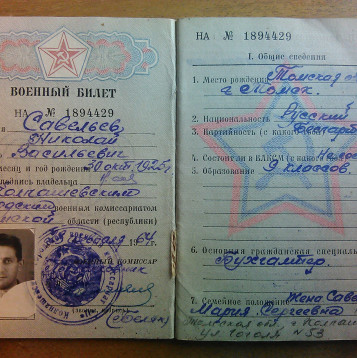 ВОЕННЫЙ БИЛЕТ
НА № 1894429
Савельев
Николай
Васильевич
месяц и год рождения 30 окт. 1925г.
подпись владельца
Колпашевским
военным комиссариатом
области (республики)
1964г.
НА № 1894429
I. Общие сведения
1. Место рождения Томская
г. Томск.
2. Национальность Русский
3. Партийность (с какого
4. Состоит ли в ВЛКСМ (с какого
5. Образование 9 классов.
6. Основная гражданская специаль
Бухгалтер.
7. Семейное положение Жена Саве
Мария Сергеевна
Томская обл. г. Колпаш
ул. Гоголя № 53